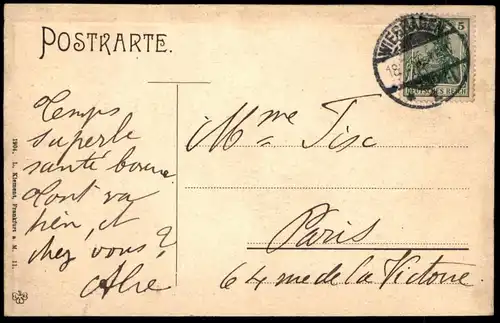 POSTKARTE.
WIESBADEN
18.
5
DEUTSCHES REICH
Temps
superbe
santé bonne
Tout va
bien, et
chez vous?
Mme Tisc
Paris
64 rue de la Victoire
1904, L. Klement, Frankfurt a. M. 11.